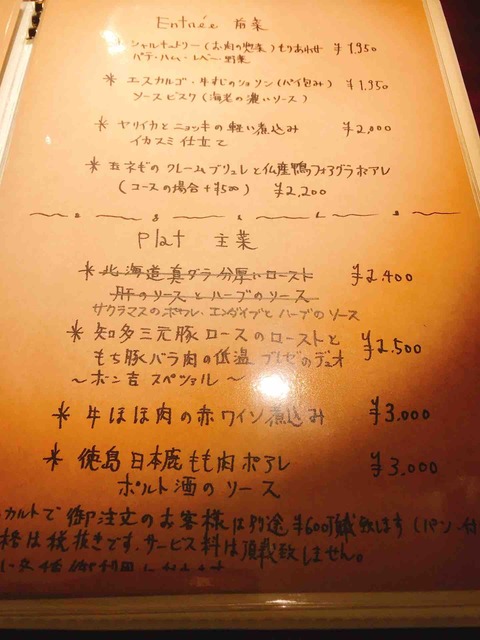 Entrée 前菜
シャルキュトリー(お肉の惣菜)もりあわせ ¥1,950
パテ・ハム・レバー・野菜
* エスカルゴ・牛すじのショソン(パイ包み) ¥1,950
ソースビスク(海老の濃いソース)
* ヤリイカとニョッキの軽い煮込み ¥2,000
イカスミ仕立て
* 玉ネギのクレームブリュレと仏産鴨のフォアグラポアレ
(コースの場合+¥500) ¥2,200
Plat 主菜
* 北海道真ダラ分厚いロースト ¥2,400
肝のソースとハーブのソース
サクラマスのポワレ.エンダイブとハーブのソース
* 知多三元豚ロースのローストと
もち豚バラ肉の低温ブレゼのデュオ ¥2,500
~ホン吉スペシャル~
* 牛ほほ肉の赤ワイン煮込み ¥3,000
* 徳島日本鹿もも肉ポアレ ¥3,000
ポルト酒のソース
カルトで御注文のお客様は別途¥600頂戴致します(パン・付
格は税抜きです.サービス料は頂戴致しません。